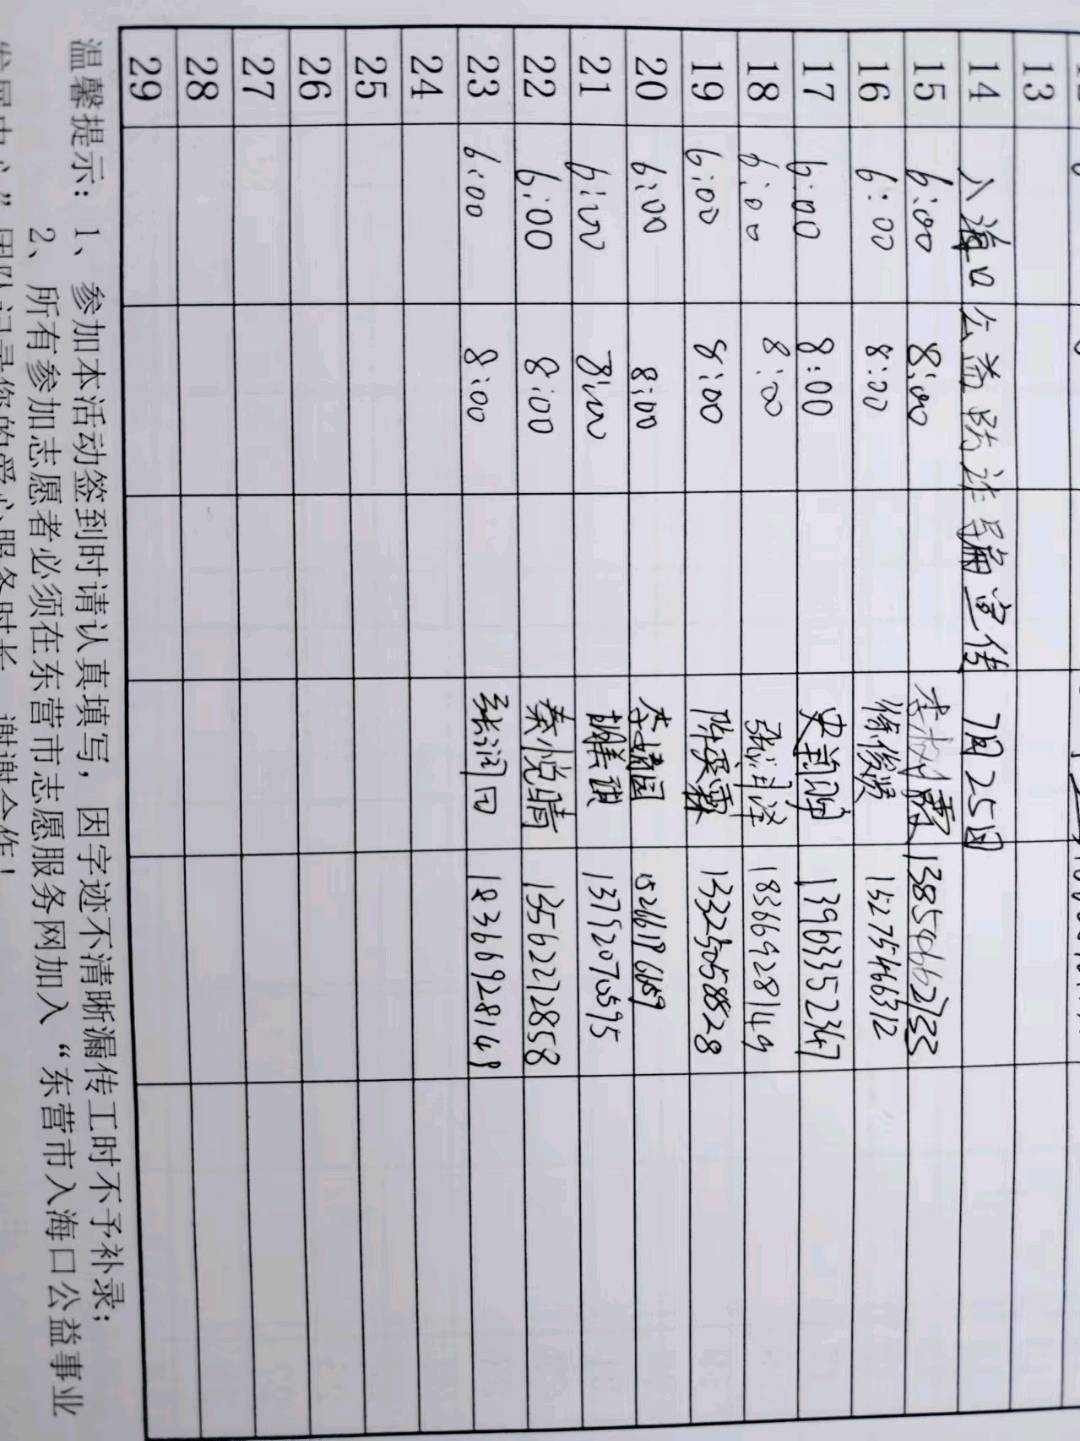 13
14 入海口公益防诈骗宣传 7月25日
15 6:00 8:00 138546662733
16 6:00 8:00 徐俊贤 15275466312
17 6:00 8:00 13963352347
18 6:00 8:00 张润泽 18366928149
19 6:00 8:00 13325058828
20 6:00 8:00
21 6:00 8:00 13792070595
22 6:00 8:00 秦悦晴 13562272858
23 6:00 8:00 张润田 18366928149
24
25
26
27
28
29
温馨提示：1、参加本活动签到时请认真填写，因字迹不清晰漏传工时不予补录；
2、所有参加志愿者必须在东营市志愿服务网加入“东营市入海口公益事业
发展中心”团队记录您的爱心服务时长，谢谢合作！